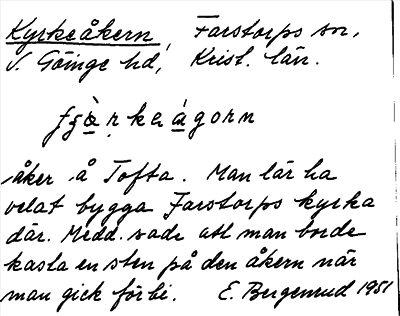 Kyrkeåkern, Farstorps sn,
V. Göinge hd, Krist. län.
åker å Tofta. Man lär ha
velat bygga Farstorps kyrka
där. Medd. sade att man borde
kasta en sten på den åkern när
man gick förbi. E. Bergenrud 1951